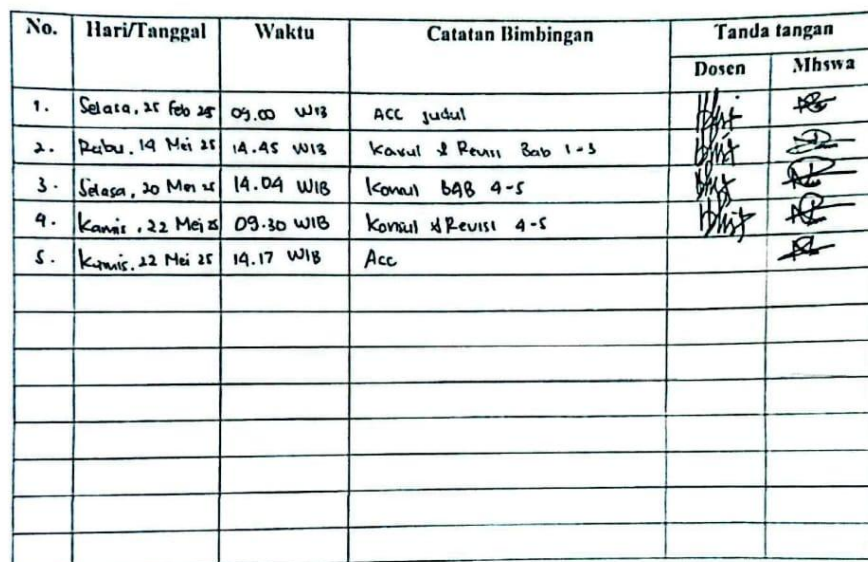 No. Hari/Tanggal Waktu Catatan Bimbingan Tanda tangan
Dosen Mhswa
1. Selasa, 25 Feb 25 09.00 WIB ACC judul
2. Rabu, 14 Mei 25 14.45 WIB Konsul & Revisi Bab 1-3
3. Selasa, 20 Mei 25 14.04 WIB Konsul BAB 4-5
4. Kamis, 22 Mei 25 09.30 WIB Konsul & Revisi 4-5
5. Kamis, 22 Mei 25 14.17 WIB Acc